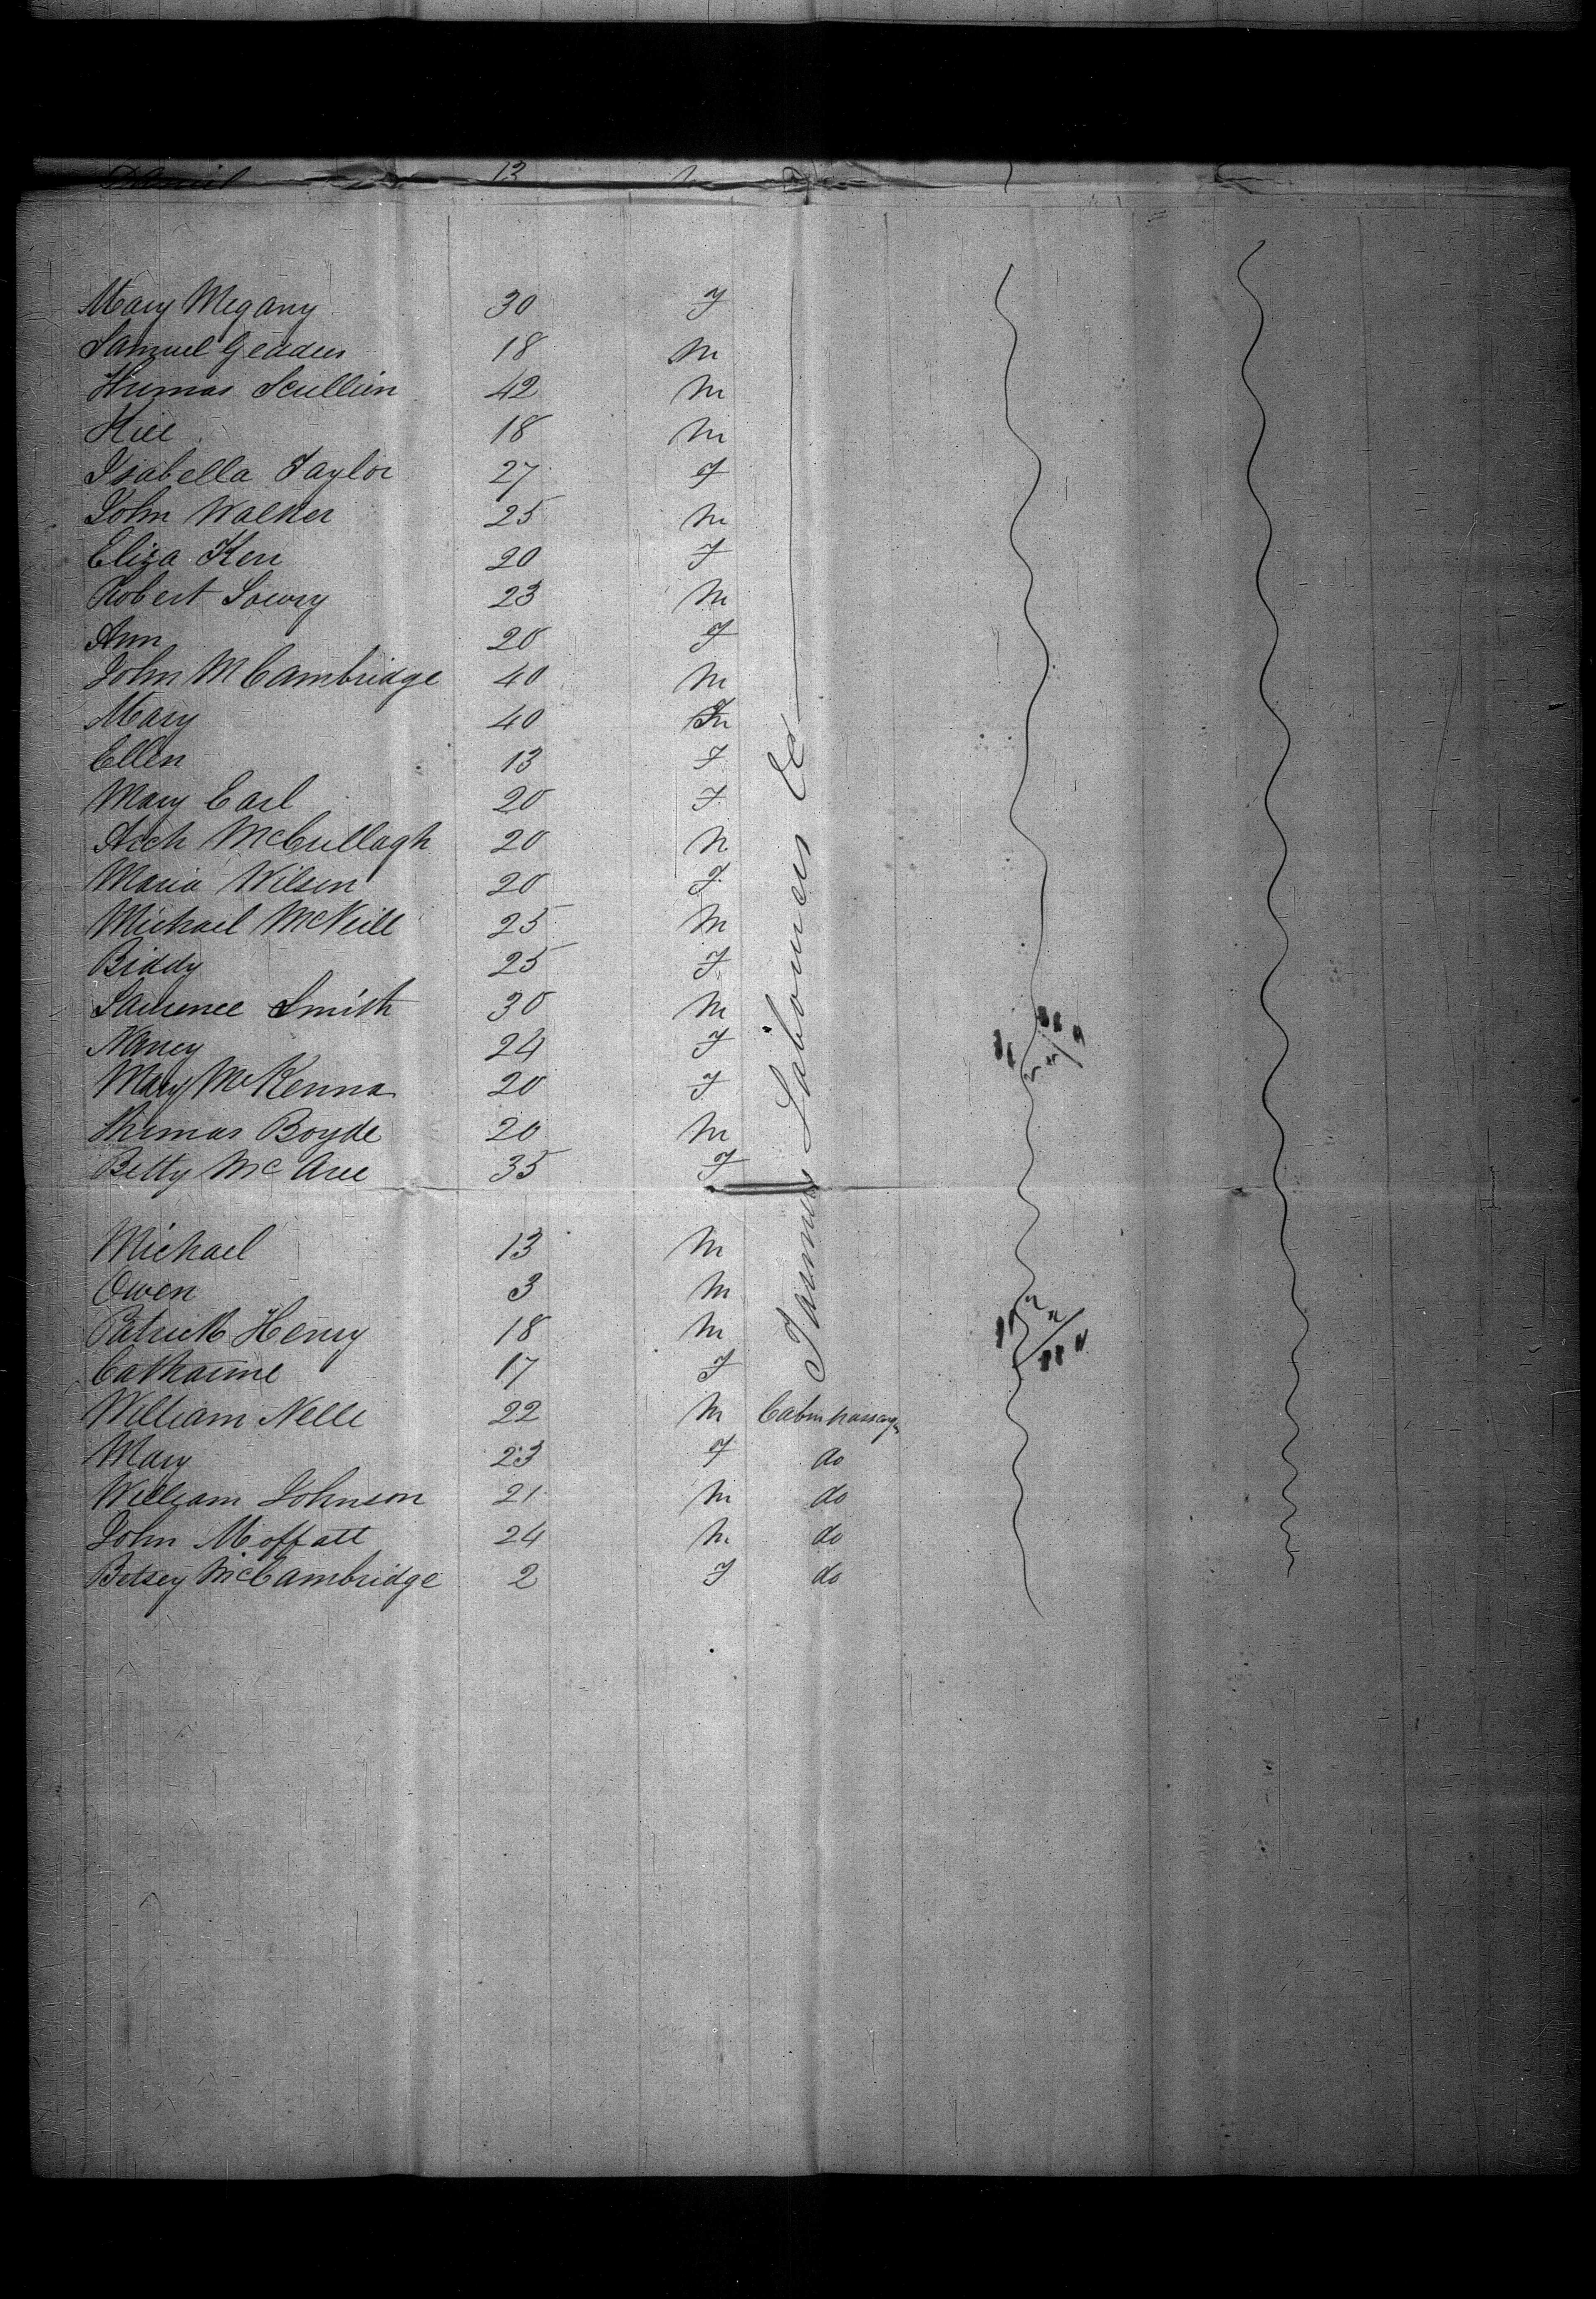 Daniel 13 M
Mary Megany 30 F
Samuel Geddes 18 M
Thomas Scullion 42 M
18 M
Isabella Taylor 27 F
John Walker 25 M
Eliza Kerr 20 F
Robert Lowry 23 M
Ann 20 F
John McCambridge 40 M
Mary 40 F
Ellen 13 F
Mary Carl 20 F
Arch McCullagh 20 M
Maria Wilson 20 F
Michael McNeill 25 M
Biddy 25 F
Laurence Smith 30 M
Nancy 24 F
Mary McKenna 20 F
Thomas Boyde 20 M
Betty McAree 35 F
Michael 13 M
Owen 3 M
Patrick Henry 18 M
Catharine 17 F
Farmers Labourers &c
William Nelle 22 M Cabin passengr
Mary 23 F do
William Johnson 21 M do
John Moffatt 24 M do
Betsey McCambridge 2 F do